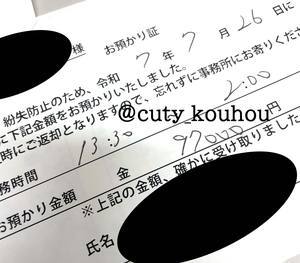 様 お預かり証
紛失防止のため、令和 7 年 7 月 26 日に
に下記金額をお預かりいたしました。
時にご返却となりますので、忘れずに事務所にお寄りくださ
務時間 13:30 2:00
@cuty_kouhou
お預かり金額 金 97000 円
※上記の金額、確かに受け取りました
氏名